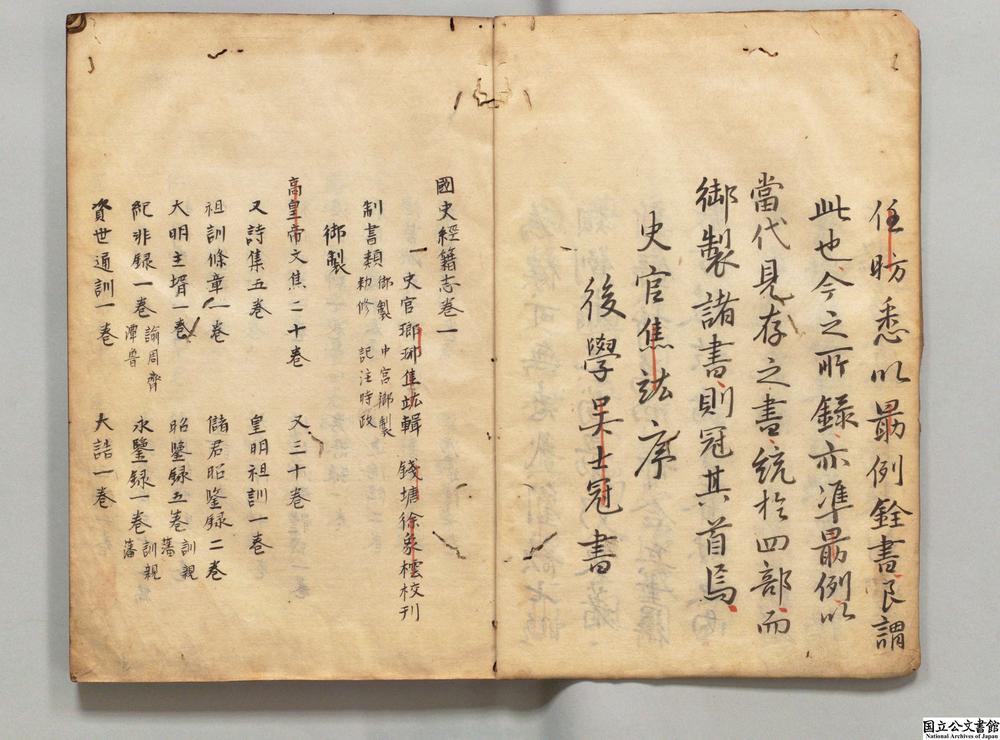 任昉悉以㝡例銓書良謂
此也今之所錄亦準㝡例以
當代見存之書統於四部而
御製諸書則冠其首焉
史官焦竑序
後學吴士冠書
國史經籍志卷一
史官瑯琊焦竑輯 錢塘徐象橒校刊
制書類 御製 中宮御製 勅修 記注時政
御製
高皇帝文集二十卷 又三十卷
又詩集五卷 皇明祖訓一卷
祖訓條章一卷 儲君昭鑒録二卷
大明主壻一卷 昭鑒録五卷 訓親藩
紀非録一卷 諭周齊潭魯 永鑒録一卷 訓親藩
資世通訓一卷 大誥一卷
国立公文書館
National Archives of Japan